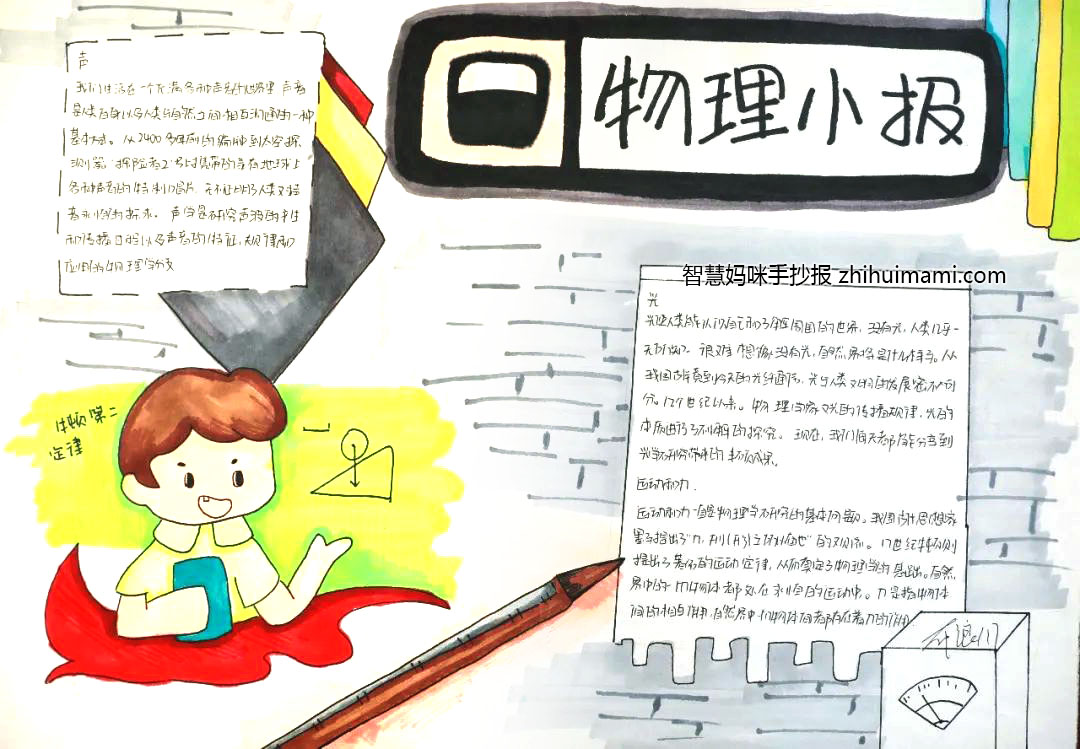 物理小报
智慧妈咪手抄报 zhihuimami.com
声
我们生活在一个充满各种声音的世界里 声音
是人类自身以及人类与自然之间相互沟通的一种
基本方式。从2400多年前的编钟到太空探
各种声音的特制唱片,无不证明了人类对声
音永恒的探求。声学是研究声波的产生
和传播过程以及声音的特征,规律和
应用的物理学分支
牛顿第二
定律
光
光使人类能认识自己和了解周围的世界,没有光,人类几乎一
无所知。很难想像没有光,自然界将是什么样子。从
我国古代到今天的光纤通信,光与人类文明的发展密不可
分。17世纪以来。物理学家对光的传播规律,光的
本质进行了不懈的探究。现在,我们每天都能分享到
光学研究带来的丰硕成果。
运动和力.
运动和力一直是物理学研究的基本问题。我国古代思想家
墨子指出了"力,刑(形)之所以奋也"的观点。17世纪牛顿则
提出了著名的运动定律,从而奠定了物理学的基础。自然
界中的一切物体都处在永恒的运动中。力是指物体
间的相互作用,自然界中一切物体间都存在着力的作用.